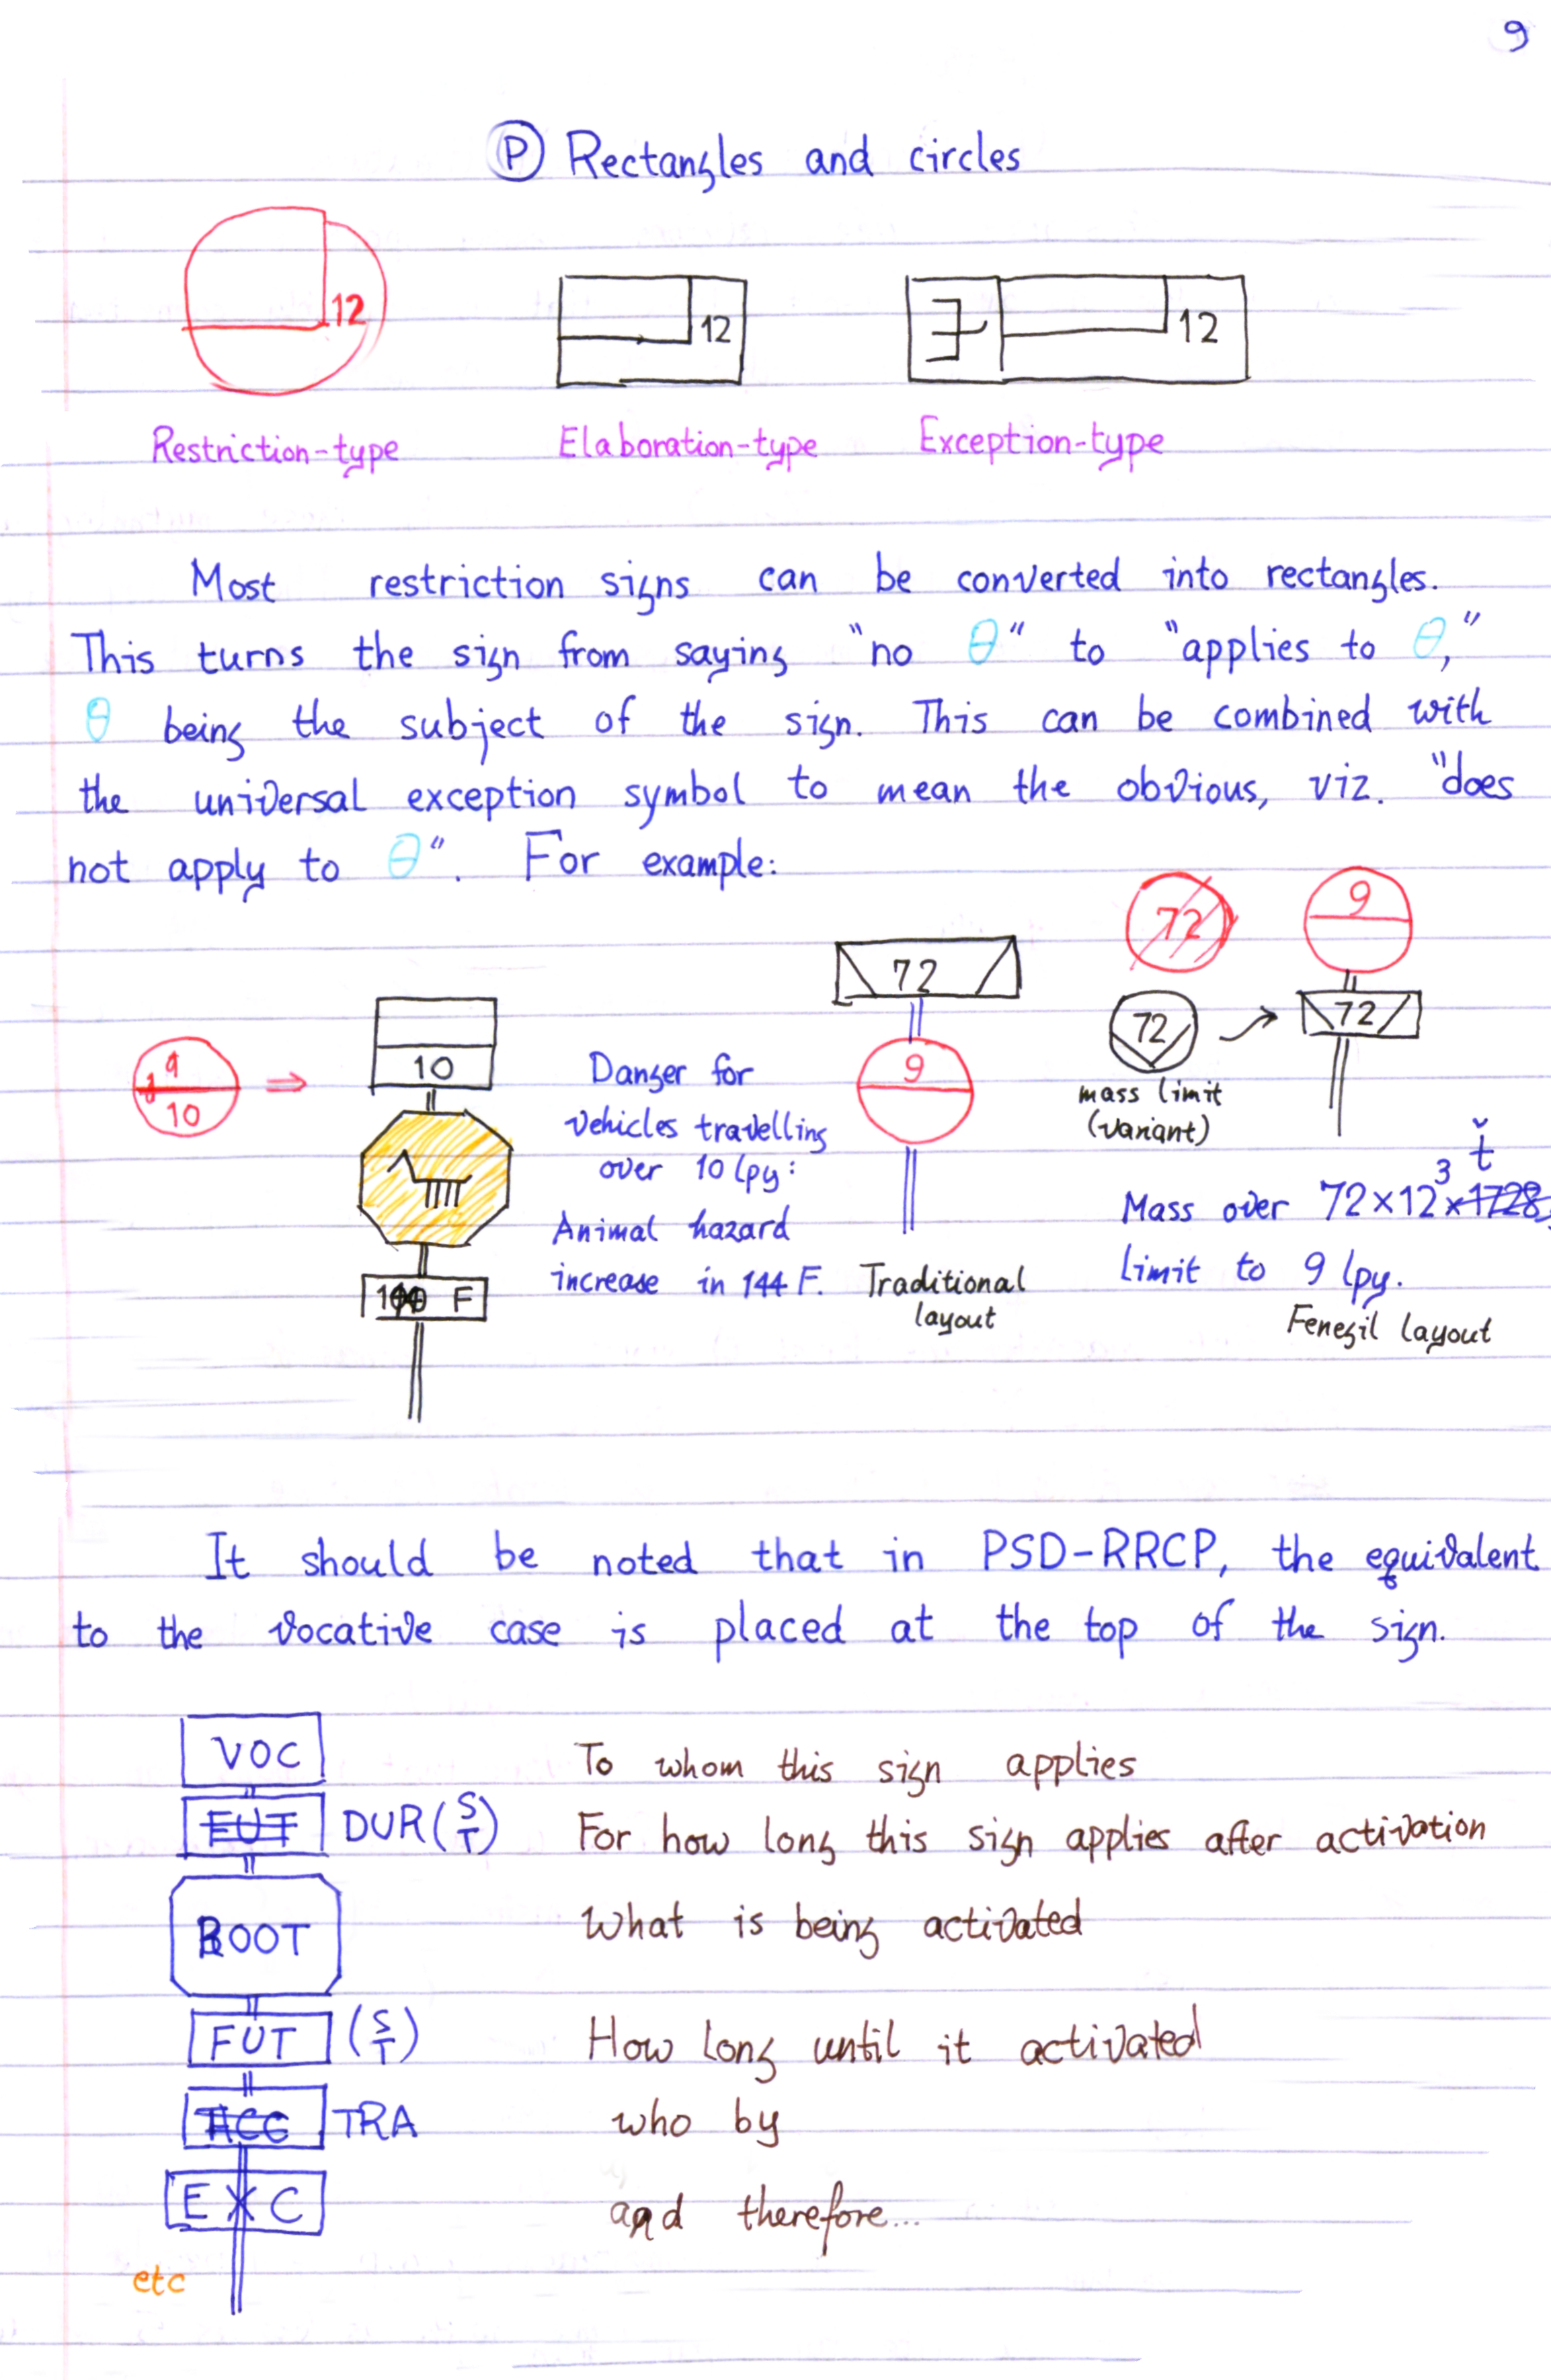 9
Ⓟ Rectangles and circles
12
12
12
Restriction-type Elaboration-type Exception-type
Most restriction signs can be converted into rectangles.
This turns the sign from saying "no θ" to "applies to θ,"
θ being the subject of the sign. This can be combined with
the universal exception symbol to mean the obvious, viz. "does
not apply to θ". For example:
72
9
72
72
72
10
9
10
9
Danger for
vehicles travelling
over 10 lpy:
Animal hazard
increase in 144 F.
F
Traditional
layout
mass limit
(variant)
Mass over 72×12³ ×1728 ť
limit to 9 lpy.
Fenesil layout
It should be noted that in PSD-RRCP, the equivalent
to the vocative case is placed at the top of the sign.
VOC To whom this sign applies
FUT DUR(S/T) For how long this sign applies after activation
ROOT What is being activated
FUT (S/T) How long until it activated
ACC TRA who by
EXC and therefore...
etc